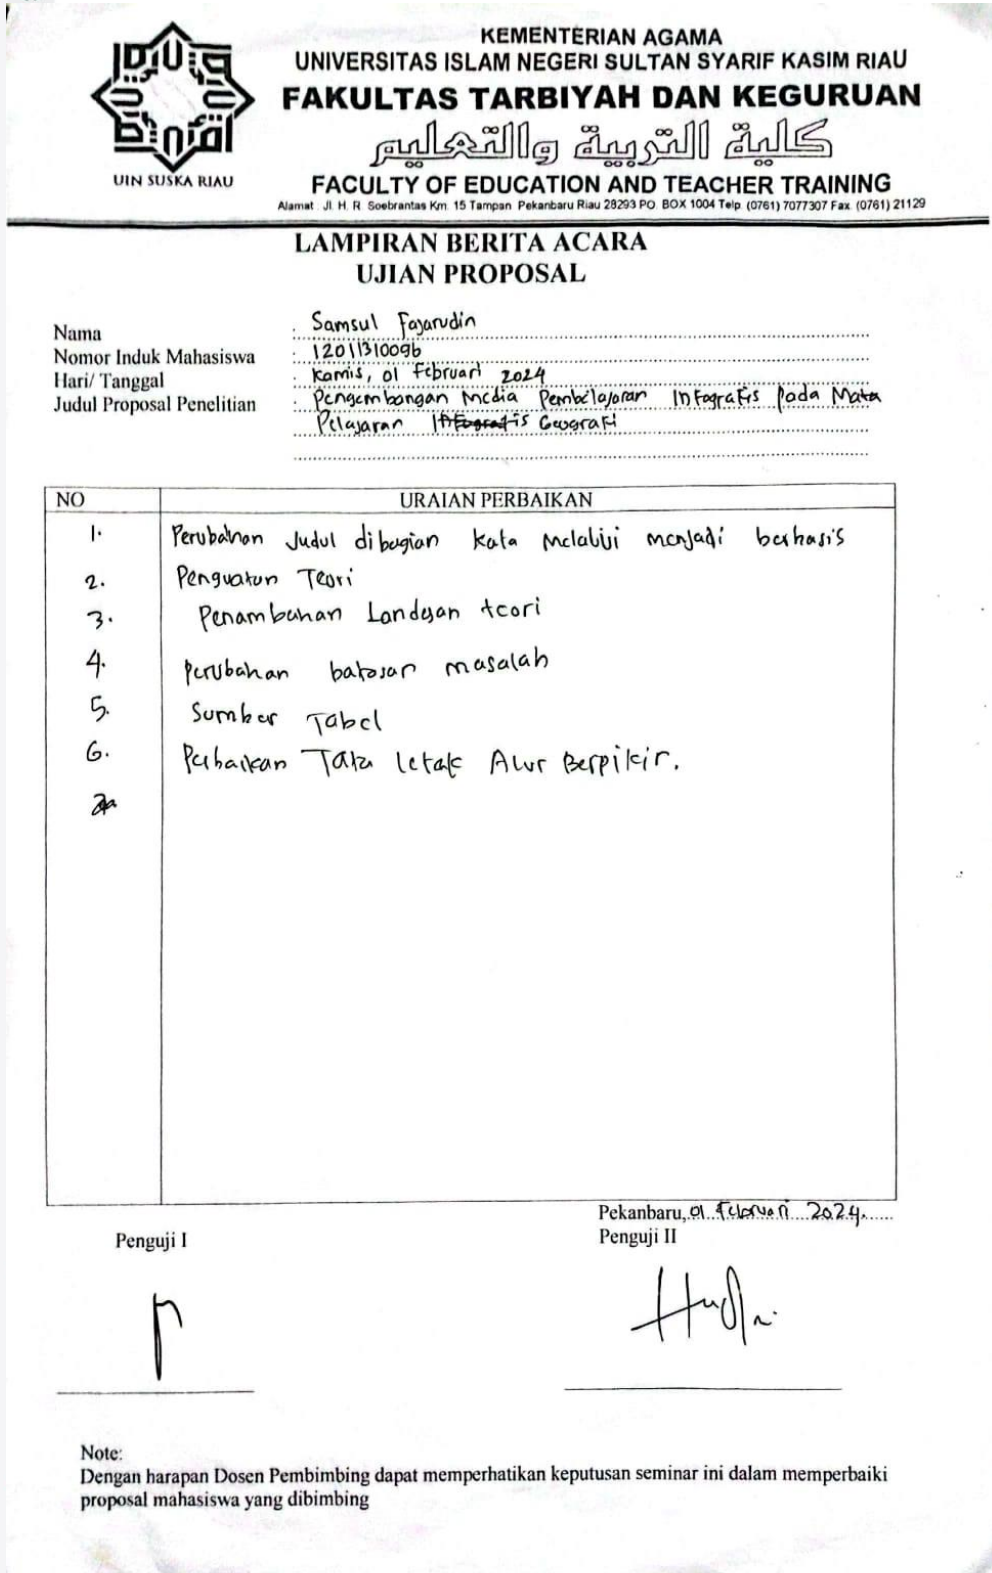 UIN SUSKA RIAU
KEMENTERIAN AGAMA
UNIVERSITAS ISLAM NEGERI SULTAN SYARIF KASIM RIAU
FAKULTAS TARBIYAH DAN KEGURUAN
كلية التربية والتعليم
FACULTY OF EDUCATION AND TEACHER TRAINING
Alamat : Jl. H. R. Soebrantas Km. 15 Tampan Pekanbaru Riau 28293 PO. BOX 1004 Telp. (0761) 7077307 Fax. (0761) 21129
LAMPIRAN BERITA ACARA
UJIAN PROPOSAL
Nama : Samsul Fajarudin
Nomor Induk Mahasiswa : 12011310096
Hari/ Tanggal : Kamis, 01 Februari 2024
Judul Proposal Penelitian : Pengembangan Media Pembelajaran Infografis Pada Mata
Pelajaran Geografi
NO URAIAN PERBAIKAN
1. Perubahan Judul dibagian kata Melalui menjadi berbasis
2. Penguatan Teori
3. Penambahan Landasan teori
4. Perubahan batasan masalah
5. Sumber Tabel
6. Perbaikan Tata letak Alur Berpikir.
Pekanbaru, 01 Februari 2024
Penguji I Penguji II
Note:
Dengan harapan Dosen Pembimbing dapat memperhatikan keputusan seminar ini dalam memperbaiki
proposal mahasiswa yang dibimbing